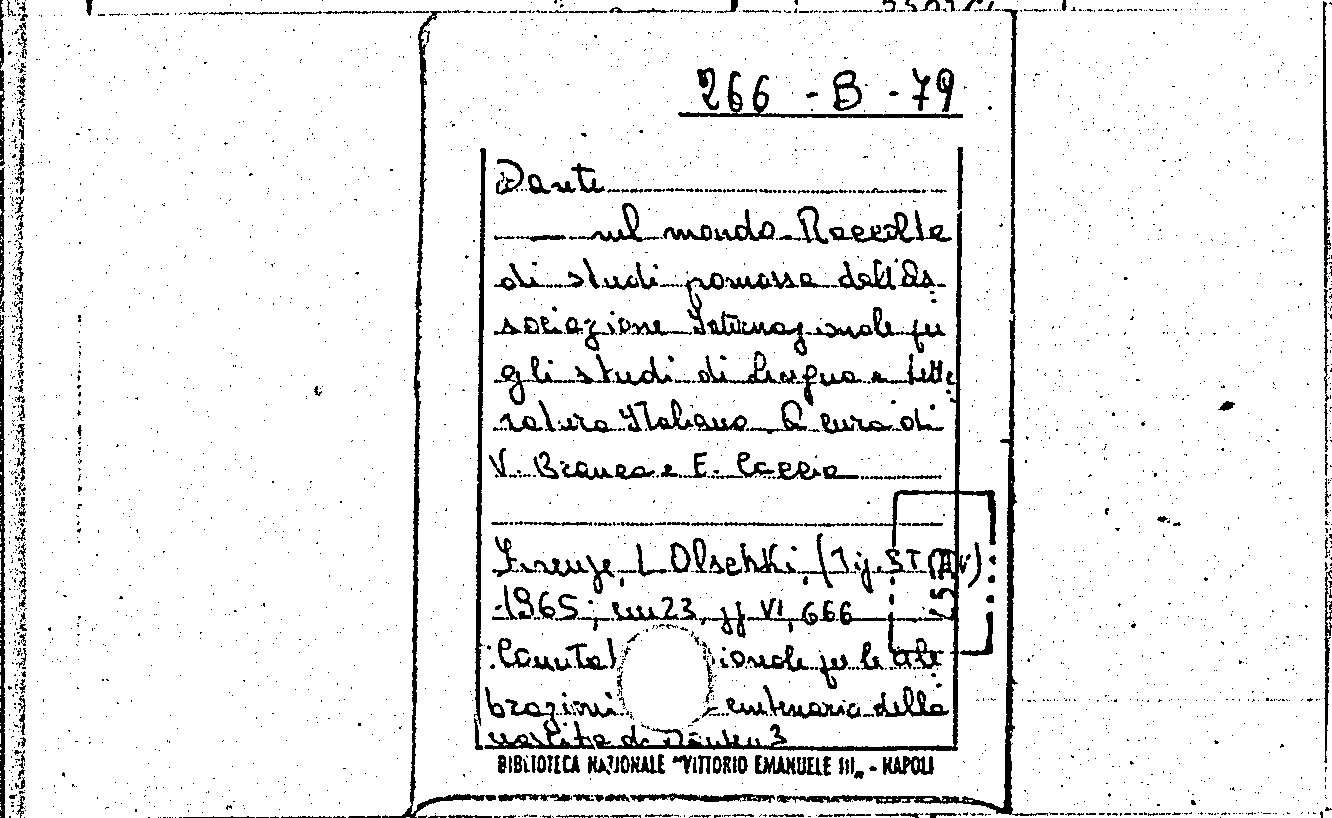 266 - B - 79
Dante
—— nel mondo. Raccolta
di studi promossa dall'As-
sociazione Internazionale per
gli studi di Lingua e Lette-
ratura Italiana. A cura di
V. Branca e E. Caccia
Firenze, L. Olschki, (Tip. STIAV)
1965; cm 23, pp VI, 666
ionale per le cele-
brazioni centenario della
nascita di Dante, 3
BIBLIOTECA NAZIONALE "VITTORIO EMANUELE III„ - NAPOLI